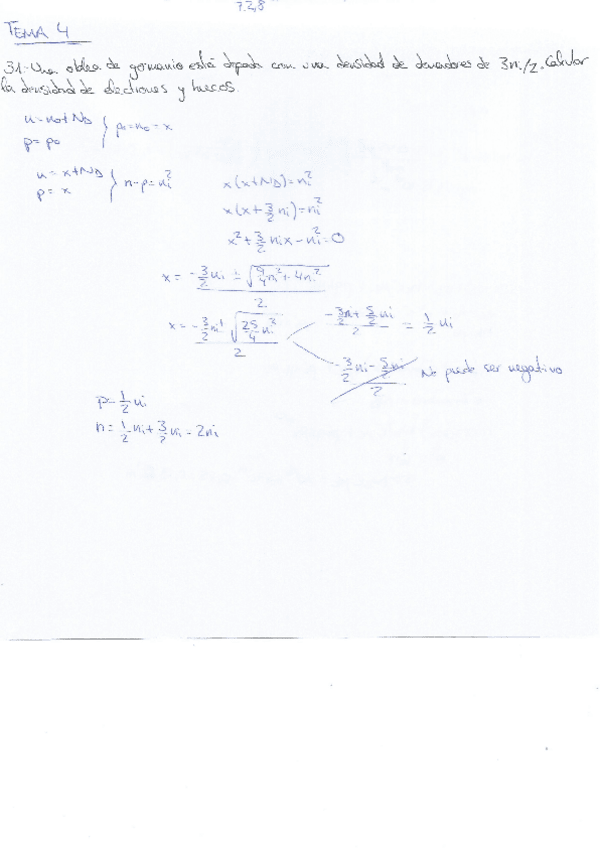 7.2,8
TEMA 4
31.- Una oblea de germanio está dopada con una densidad de donadores de 3ni/2. Calcular
la densidad de electrones y huecos.
n = n0 + ND } p0 = n0 = x
p = p0
n = x + ND } n·p = ni²
p = x
x(x+ND) = ni²
x(x + 3/2 ni) = ni²
x² + 3/2 ni x - ni² = 0
x = (-3/2 ni ± √(9/4 ni² + 4ni²)) / 2
x = (-3/2 ni ± √(25/4 ni²)) / 2
(-3/2 ni + 5/2 ni) / 2 = 1/2 ni
(-3/2 ni - 5/2 ni) / 2 No puede ser negativo
p = 1/2 ni
n = 1/2 ni + 3/2 ni = 2ni